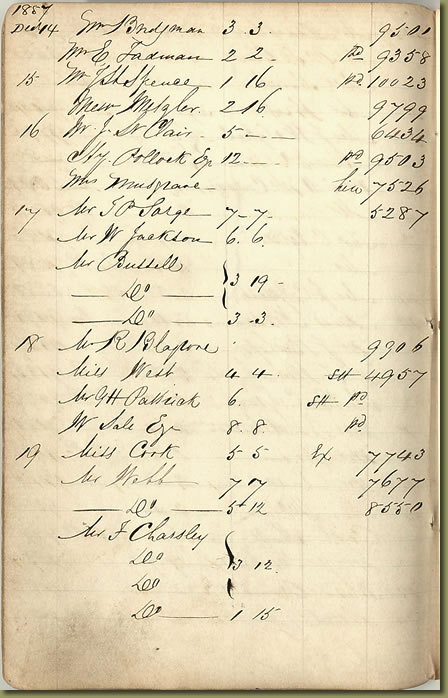 1857
Decr 14 Mr Bridgman 3 3. 9501
Mr E Tadman 2 2 pd 9358
15 Mr 1 16 pd 10023
2 16 9799
16 Mr J St Clair 5 — 6434
Hy. Pollock Eq 12 — pd 9503
Mrs Musgrave — 7526
17 Mr Sarge 7 – 7 – 5287
Mr W Jackson 6. 6.
Mr Bussell
— Do — 3 19 –
— Do — 3 3.
18 Mr R Blagrove 9906
Miss West 4 4. SH 4957
Mr GH Patrick 6. SH pd
W Sale Eq 8. 8. pd
19 Miss Cook 5 5 Ex 7743
Mr Webb 7 7 7677
— Do — 5 12 8550
Mr F Charsley
Do 3 12.
Do
Do — 1 15